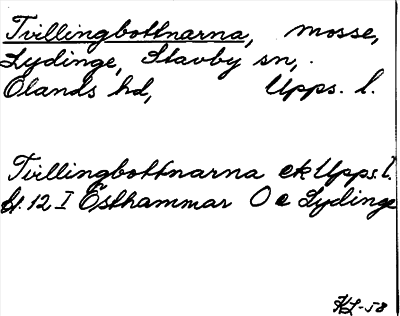 Tvillingbottnarna, mosse,
Lydinge, Stavby sn,
Olands hd, Upps. l.
Tvillingbottnarna ek Upps. l.
bl. 12 I Östhammar O e Lydinge
HL-58